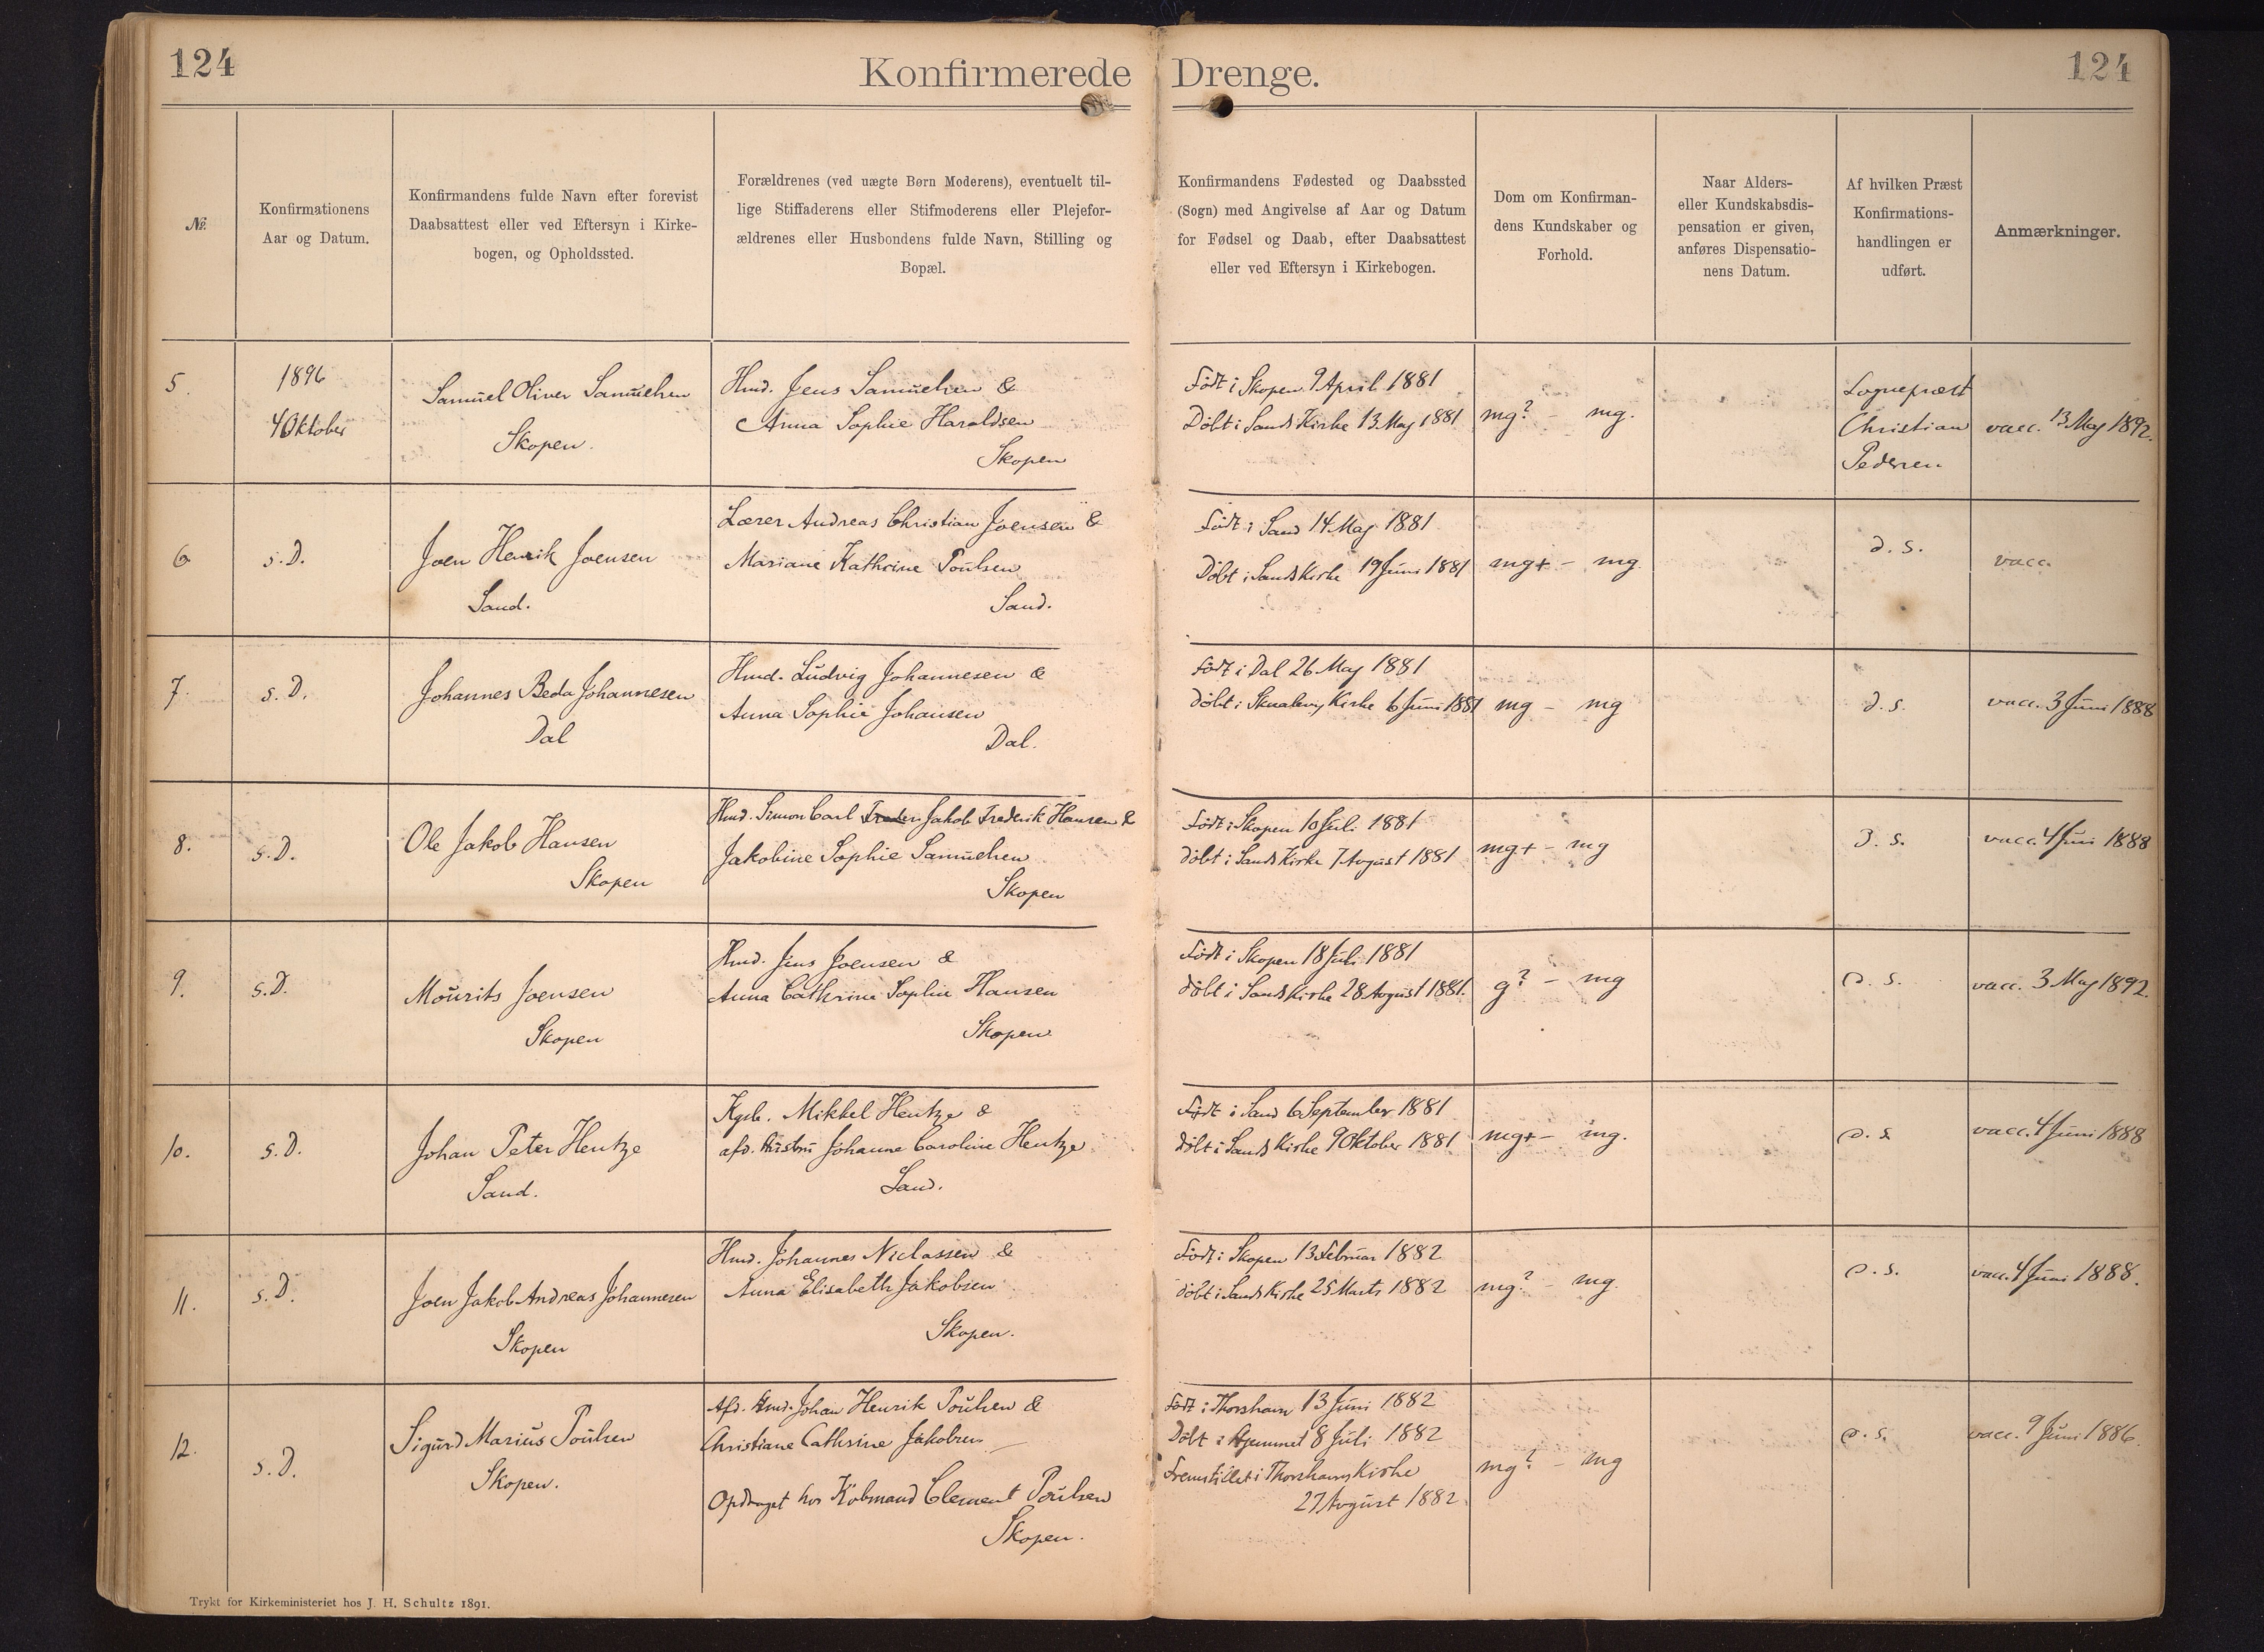 124
Konfirmerede Drenge.
124
№
Konfirmationens
Aar og Datum.
Konfirmandens fulde Navn efter forevist
Daabsattest eller ved Eftersyn i Kirke-
bogen, og Opholdssted.
Forældrenes (ved uægte Børn Moderens), eventuelt til-
lige Stiffaderens eller Stifmoderens eller Plejefor-
ældrenes eller Husbondens fulde Navn, Stilling og
Bopæl.
Konfirmandens Fødested og Daabssted
(Sogn) med Angivelse af Aar og Datum
for Fødsel og Daab, efter Daabsattest
eller ved Eftersyn i Kirkebogen.
Dom om Konfirman-
dens Kundskaber og
Forhold.
Naar Alders-
eller Kundskabsdis-
pensation er given,
anføres Dispensatio-
nens Datum.
Af hvilken Præst
Konfirmations-
handlingen er
udført.
Anmærkninger.
5.
1896
4 Oktober
Samuel Oliver Samuelsen
Skopen.
Hmd. Jens Samuelsen &
Anna Sophie Haraldsen
Skopen
Født i Skopen 9 April 1881
Døbt i Sands Kirke 13 Maj 1881
mg? - mg.
Sognepræst
Christian
Pedersen
vacc. 13 Maj 1892.
6
s. D.
Joen Henrik Joensen
Sand.
Lærer Andreas Christian Joensen &
Mariane Kathrine Poulsen
Sand.
Født i Sand 14 Maj 1881
Døbt i Sands Kirke 19 Juni 1881
mg+ - mg.
d. s.
vacc.
7.
s. D.
Johannes Beda Johannesen
Dal
Hmd. Ludvig Johannesen &
Anna Sophie Johansen
Dal.
født i Dal 26 Maj 1881
døbt i Skualevig Kirke 6 Juni 1881
mg - mg
d. s.
vacc. 3 Juni 1888
8.
s. D.
Ole Jakob Hansen
Skopen
Hmd. Simon Carl Jakob Frederik Hansen &
Jakobine Sophie Samuelsen
Skopen
Født i Skopen 10 Juli 1881
døbt i Sands Kirke 7 August 1881
mg+ - mg
d. s.
vacc. 4 Juni 1888
9.
s. D.
Mourits Joensen
Skopen
Hmd. Jens Joensen &
Anna Cathrine Sophie Hansen
Skopen
Født i Skopen 18 Juli 1881
døbt i Sands Kirke 28 August 1881.
g? - mg
d. s.
vacc. 3 Maj 1892.
10.
s. D.
Johan Peter Hentze
Sand.
Kgsb. Mikkel Hentze &
afd. Hustru Johanne Caroline Hentze
Sand.
Født i Sand 6 September 1881
døbt i Sands Kirke 9 Oktober 1881
mg+ - mg.
d. s
vacc. 4 Juni 1888
11.
s. D.
Joen Jakob Andreas Johannesen
Skopen
Hmd. Johannes Niclassen &
Anna Elisabeth Jakobsen
Skopen.
Født i Skopen 13 Februar 1882
døbt i Sands Kirke 25 Marts 1882
mg? - mg.
d. s.
vacc. 4 Juni 1888.
12.
s. D.
Sigurd Marius Poulsen
Skopen.
Afd. Hmd. Johan Henrik Poulsen &
Christiane Cathrine Jakobsen
Opdraget hos Købmand Clement Poulsen
Skopen.
født i Thorshavn 13 Juni 1882
Døbt i Hjemmet 8 Juli 1882
Fremstillet i Thorshavns Kirke
27 August 1882.
mg? - mg
d. s.
vacc. 9 Juni 1886.
Trykt for Kirkeministeriet hos J. H. Schultz 1891.